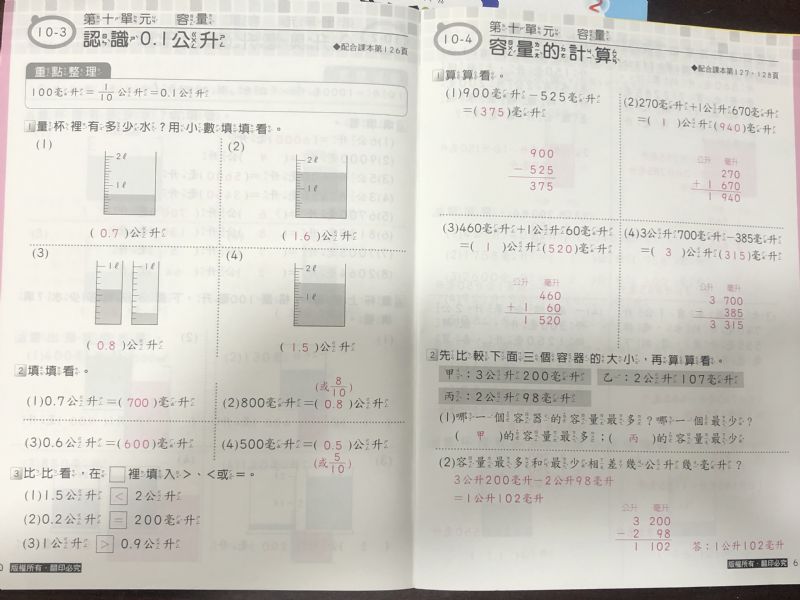 10-3
第十單元 容量
認識0.1公升
◆配合課本第126頁
重點整理
100毫升=1/10公升=0.1公升
1 量杯裡有多少水?用小數填填看。
(1)
2ℓ
1ℓ
(0.7)公升
(2)
2ℓ
1ℓ
(1.6)公升
(3)
1ℓ
1ℓ
(0.8)公升
(4)
2ℓ
1ℓ
(1.5)公升
2 填填看。
(1)0.7公升=(700)毫升
(或8/10)
(2)800毫升=(0.8)公升
(3)0.6公升=(600)毫升
(4)500毫升=(0.5)公升
(或5/10)
3 比比看,在□裡填入>、<或=。
(1)1.5公升 < 2公升
(2)0.2公升 = 200毫升
(3)1公升 > 0.9公升
版權所有·翻印必究
10-4
第十單元 容量
容量的計算
◆配合課本第127、128頁
1 算算看。
(1)900毫升-525毫升
=(375)毫升
900
- 525
375
(2)270毫升+1公升670毫升
=(1)公升(940)毫升
公升 毫升
270
+ 1 670
1 940
(3)460毫升+1公升60毫升
=(1)公升(520)毫升
公升 毫升
460
+ 1 60
1 520
(4)3公升700毫升-385毫升
=(3)公升(315)毫升
公升 毫升
3 700
- 385
3 315
2 先比較下面三個容器的大小,再算算看。
甲:3公升200毫升 乙:2公升107毫升
丙:2公升98毫升
(1)哪一個容器的容量最多?哪一個最少?
(甲)的容量最多;(丙)的容量最少
(2)容量最多和最少相差幾公升幾毫升?
3公升200毫升-2公升98毫升
=1公升102毫升
公升 毫升
3 200
- 2 98
1 102
答:1公升102毫升
版權所有·翻印必究 6